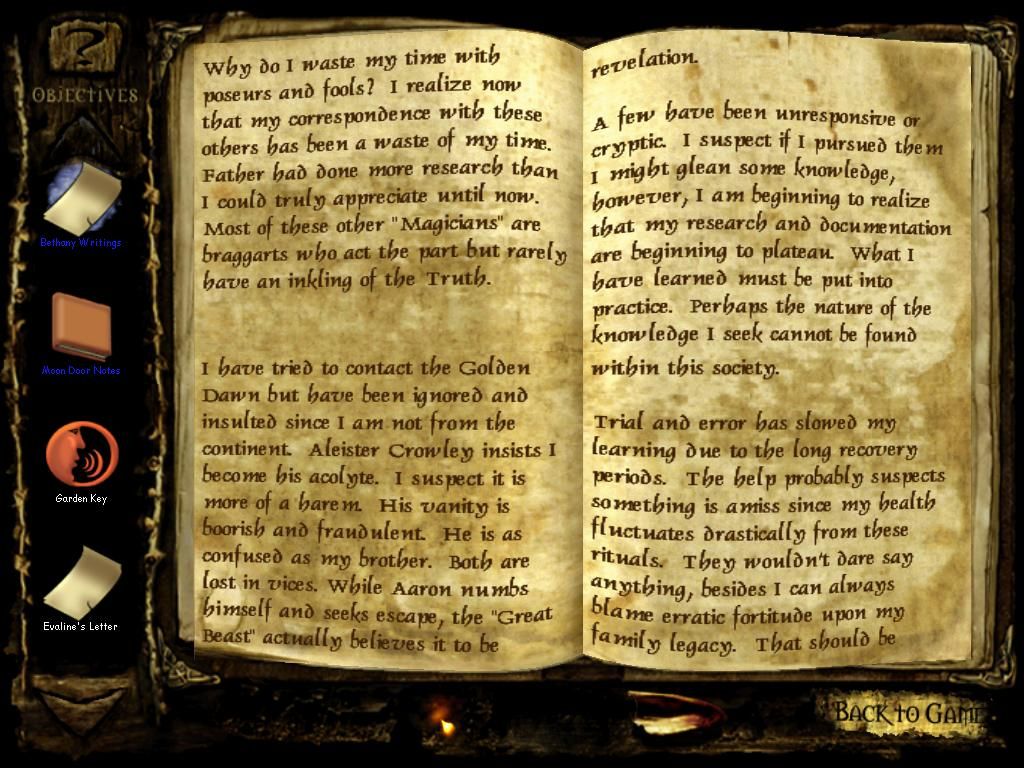 OBJECTIVES
Bethany Writings
Moon Door Notes
Garden Key
Evaline's Letter
Why do I waste my time with
poseurs and fools? I realize now
that my correspondence with these
others has been a waste of my time.
Father had done more research than
I could truly appreciate until now.
Most of these other "Magicians" are
braggarts who act the part but rarely
have an inkling of the Truth.
I have tried to contact the Golden
Dawn but have been ignored and
insulted since I am not from the
continent. Aleister Crowley insists I
become his acolyte. I suspect it is
more of a harem. His vanity is
boorish and fraudulent. He is as
confused as my brother. Both are
lost in vices. While Aaron numbs
himself and seeks escape, the "Great
Beast" actually believes it to be
revelation.
A few have been unresponsive or
cryptic. I suspect if I pursued them
I might glean some knowledge,
however, I am beginning to realize
that my research and documentation
are beginning to plateau. What I
have learned must be put into
practice. Perhaps the nature of the
knowledge I seek cannot be found
within this society.
Trial and error has slowed my
learning due to the long recovery
periods. The help probably suspects
something is amiss since my health
fluctuates drastically from these
rituals. They wouldn't dare say
anything, besides I can always
blame erratic fortitude upon my
family legacy. That should be
BACK TO GAME